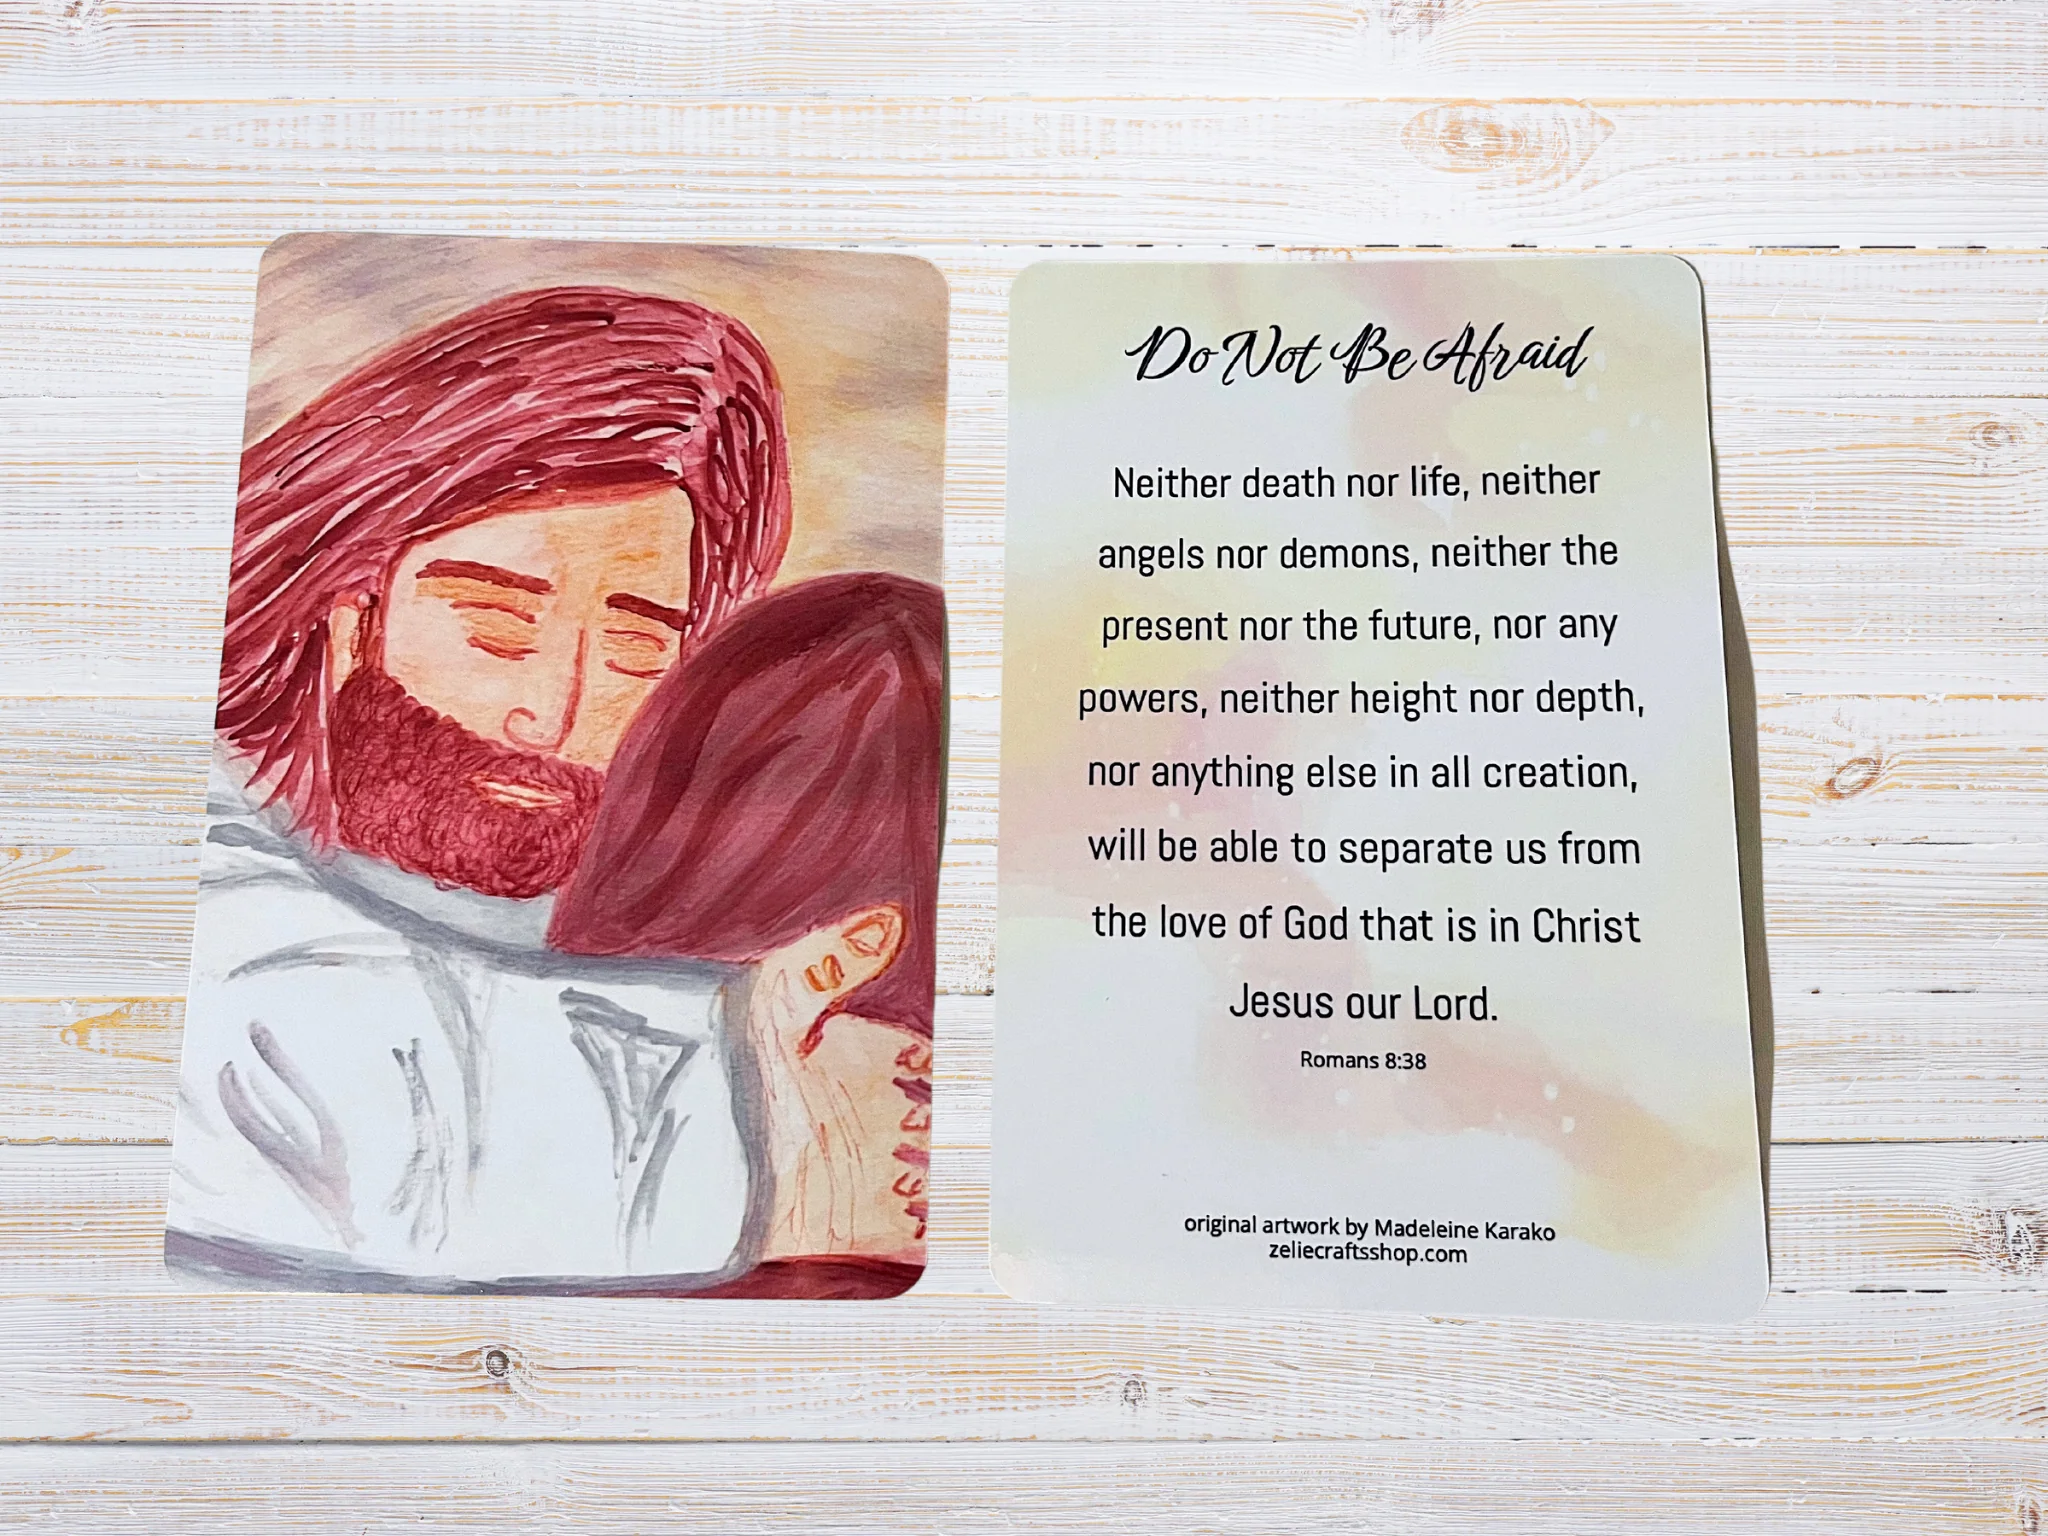 Do Not Be Afraid
Neither death nor life, neither
angels nor demons, neither the
present nor the future, nor any
powers, neither height nor depth,
nor anything else in all creation,
will be able to separate us from
the love of God that is in Christ
Jesus our Lord.
Romans 8:38
original artwork by Madeleine Karako
zeliecraftsshop.com